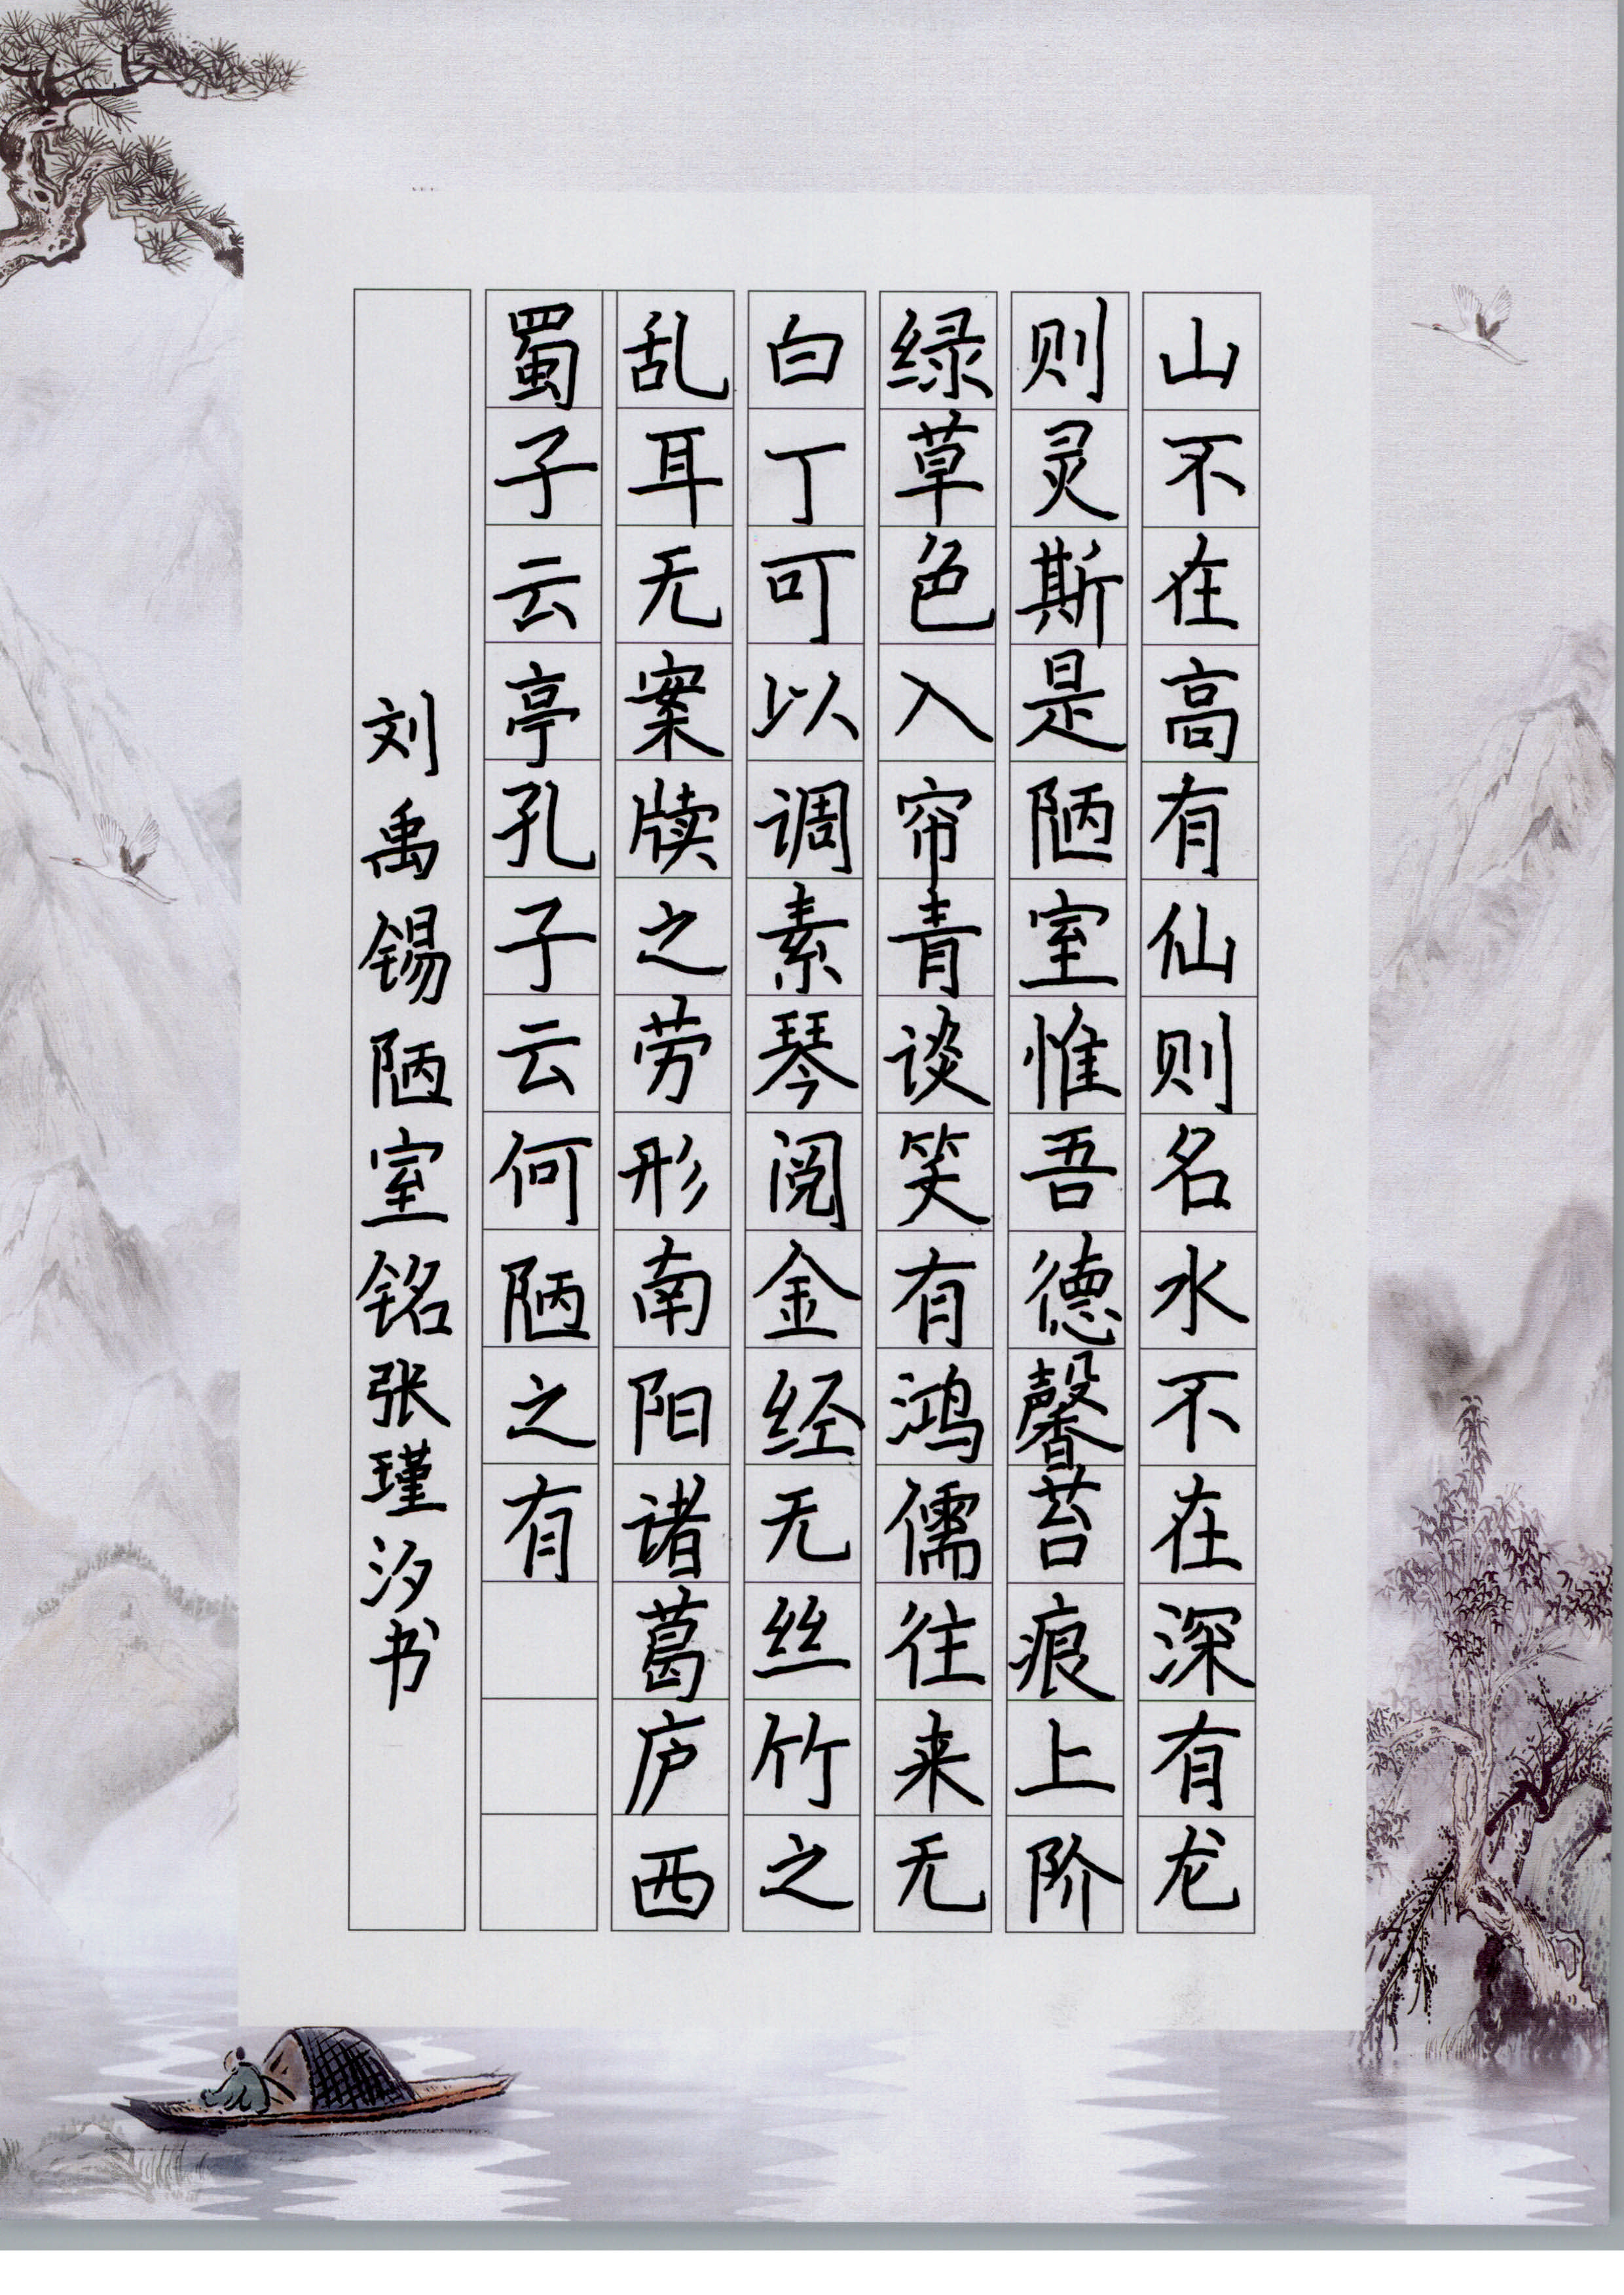 山不在高有仙则名水不在深有龙
则灵斯是陋室惟吾德馨苔痕上阶
绿草色入帘青谈笑有鸿儒往来无
白丁可以调素琴阅金经无丝竹之
乱耳无案牍之劳形南阳诸葛庐西
蜀子云亭孔子云何陋之有
刘禹锡陋室铭张瑾汐书